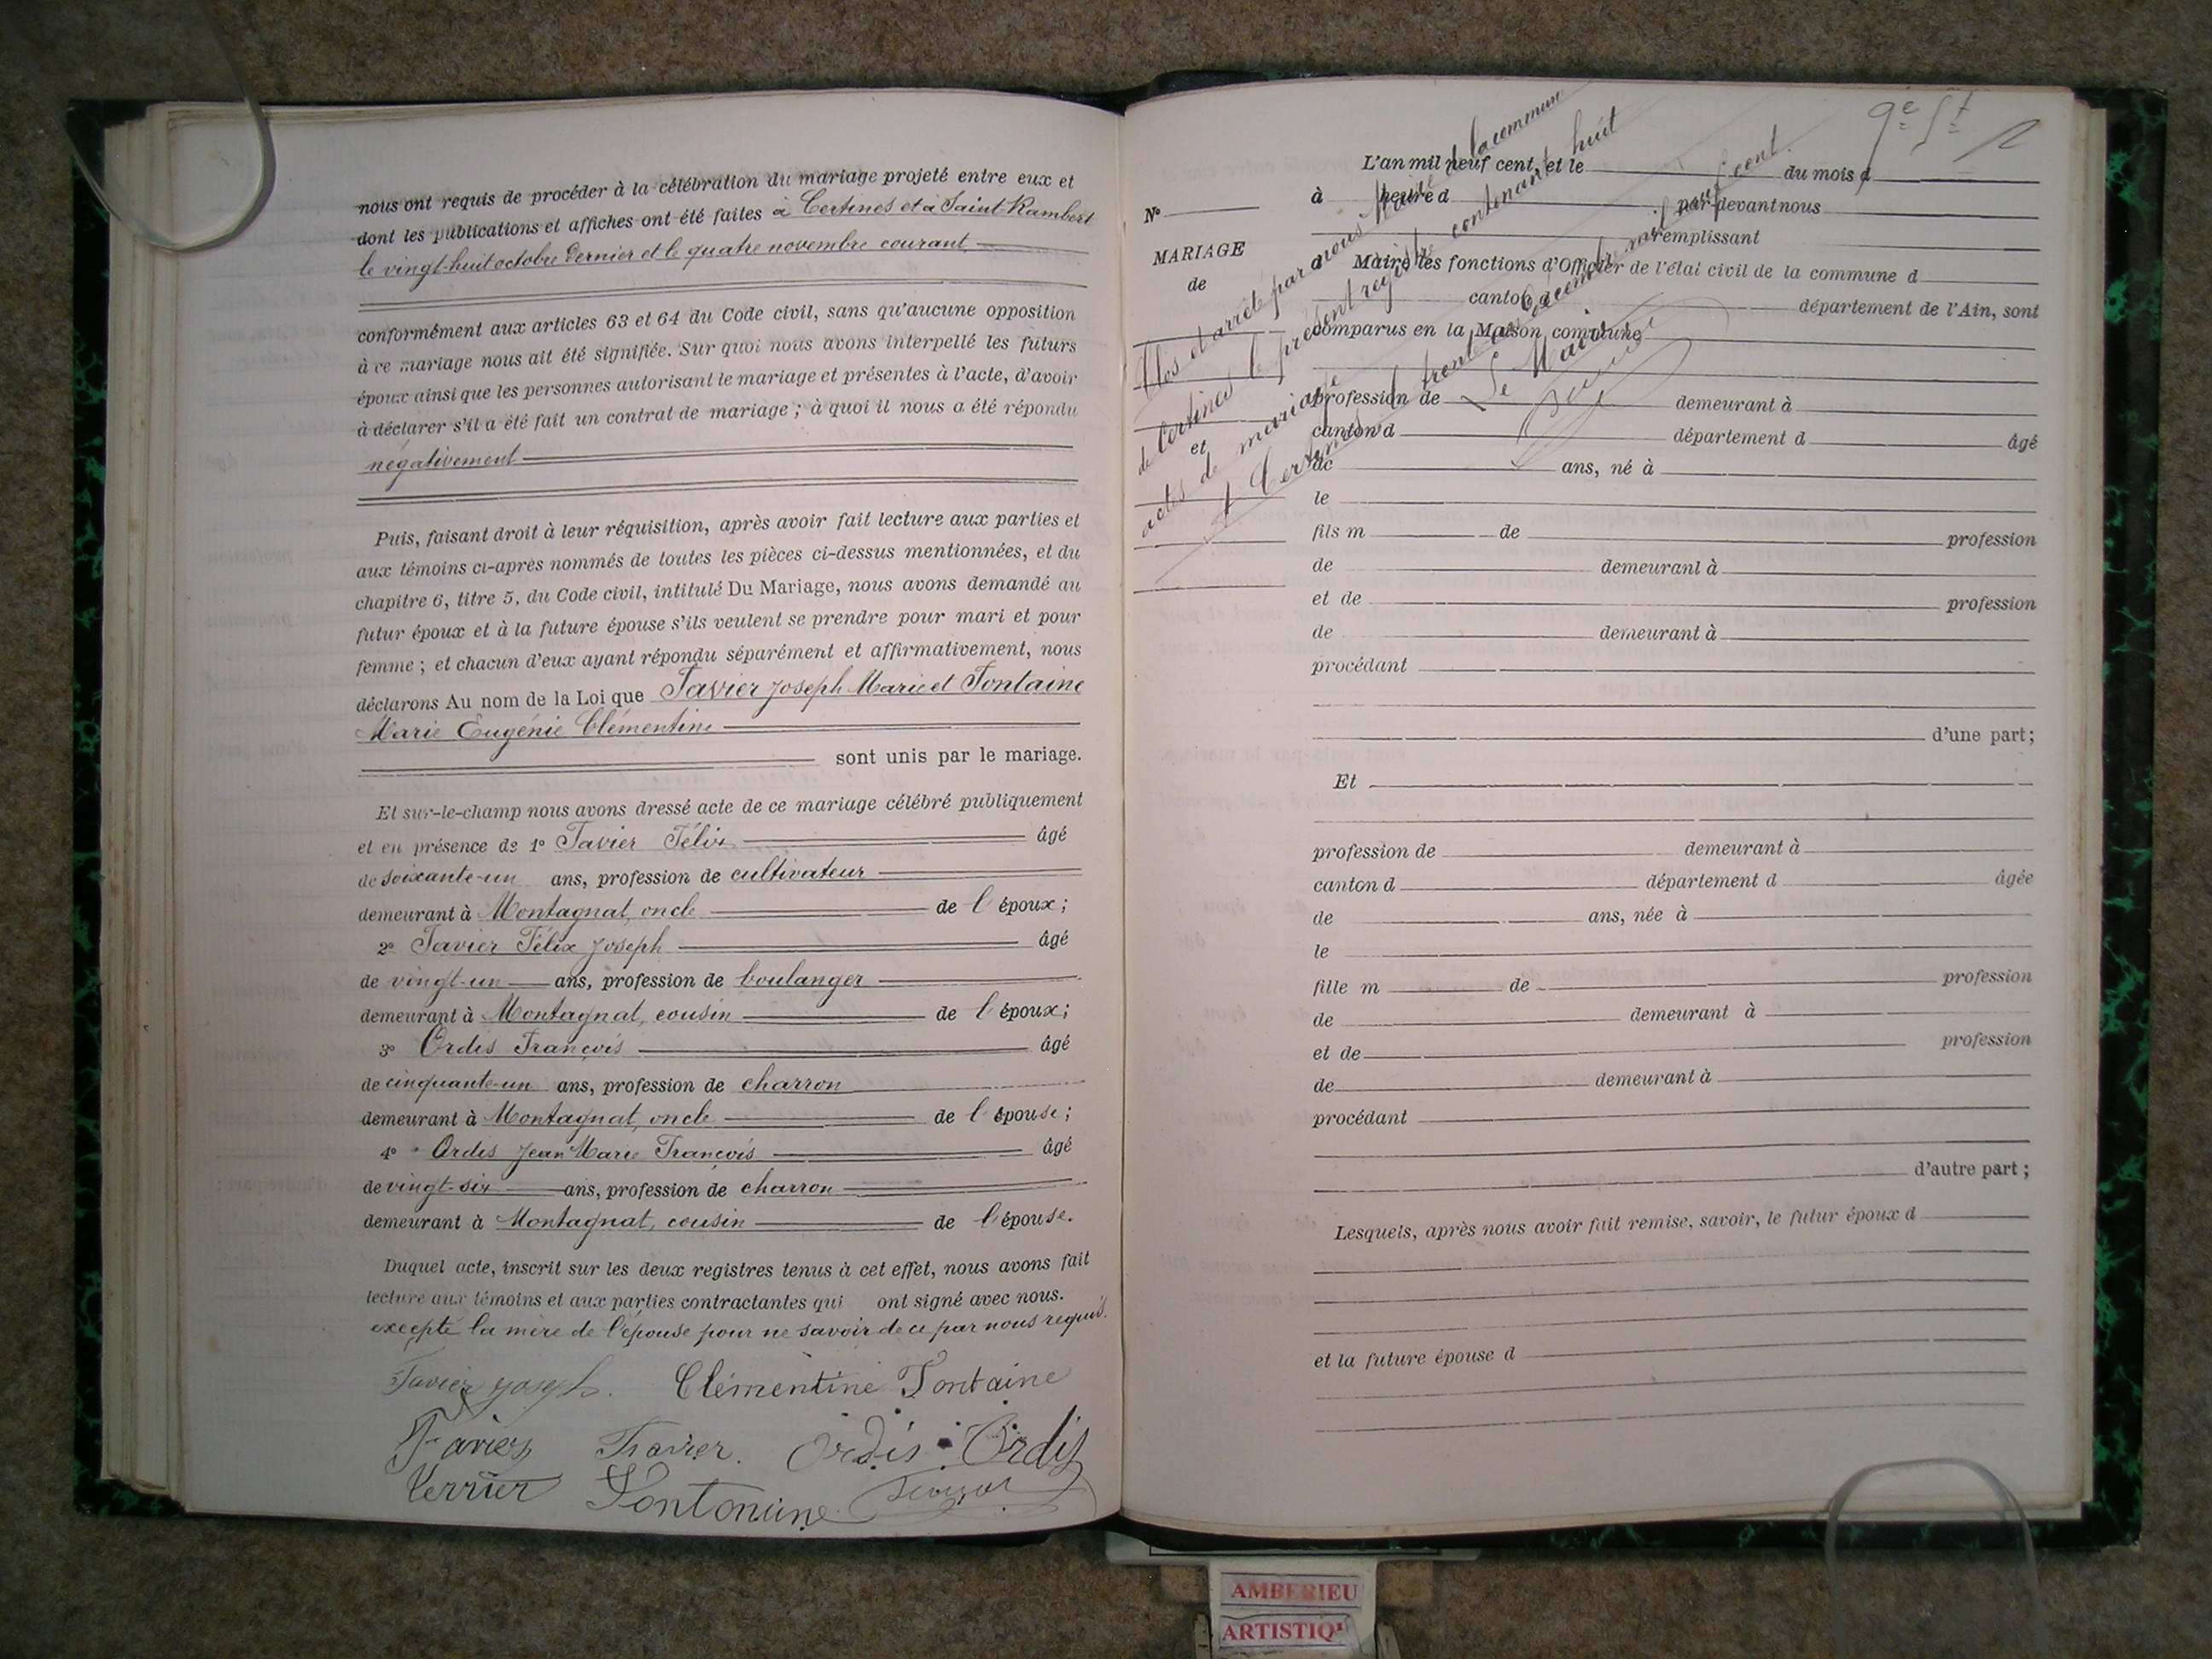 nous ont requis de procéder à la célébration du mariage projeté entre eux et
dont les publications et affiches ont été faites à Certines et à Saint-Rambert
le vingt-huit octobre dernier et le quatre novembre courant
conformément aux articles 63 et 64 du Code civil, sans qu'aucune opposition
à ce mariage nous ait été signifiée. Sur quoi nous avons interpellé les futurs
époux ainsi que les personnes autorisant le mariage et présentes à l'acte, d'avoir
à déclarer s'il a été fait un contrat de mariage ; à quoi il nous a été répondu
négativement
Puis, faisant droit à leur réquisition, après avoir fait lecture aux parties et
aux témoins ci-après nommés de toutes les pièces ci-dessus mentionnées, et du
chapitre 6, titre 5, du Code civil, intitulé Du Mariage, nous avons demandé au
futur époux et à la future épouse s'ils veulent se prendre pour mari et pour
femme ; et chacun d'eux ayant répondu séparément et affirmativement, nous
déclarons Au nom de la Loi que Favier Joseph Marie et Fontaine
Marie Eugénie Clémentine
sont unis par le mariage.
Et sur-le-champ nous avons dressé acte de ce mariage célébré publiquement
et en présence de 1º Favier Félix âgé
de soixante-un ans, profession de cultivateur
demeurant à Montagnat, oncle de l'époux ;
2º Favier Félix Joseph âgé
de vingt-un ans, profession de boulanger
demeurant à Montagnat, cousin de l'époux ;
3º Ordis François âgé
de cinquante-un ans, profession de charron
demeurant à Montagnat, oncle de l'épouse ;
4º Ordis Jean Marie François âgé
de vingt-six ans, profession de charron
demeurant à Montagnat, cousin de l'épouse.
Duquel acte, inscrit sur les deux registres tenus à cet effet, nous avons fait
lecture aux témoins et aux parties contractantes qui ont signé avec nous.
excepté la mère de l'épouse pour ne savoir de ce par nous requis.
Favier Joseph. Clémentine Fontaine
Favier Favier. Ordis Ordis
Verrier Fontonine
9e ft
Nº
MARIAGE
de
et
Clos et arrêté par nous Maire de la commune
de Certines le présent registre contenant huit
actes de mariage
à Certines le trente un décembre mil neuf cent.
Le Maire
L'an mil neuf cent, et le du mois d
à heure d par-devant nous
remplissant
d Maire les fonctions d'Officier de l'état civil de la commune d
canton d département de l'Ain, sont
comparus en la Maison commune
profession de demeurant à
canton d département d âgé
de ans, né à
le
fils m de profession
de demeurant à
et de profession
de demeurant à
procédant
d'une part ;
Et
profession de demeurant à
canton d département d âgée
de ans, née à
le
fille m de profession
de demeurant à
et de profession
de demeurant à
procédant
d'autre part ;
Lesquels, après nous avoir fait remise, savoir, le futur époux d
et la future épouse d
AMBERIEU
ARTISTIQ